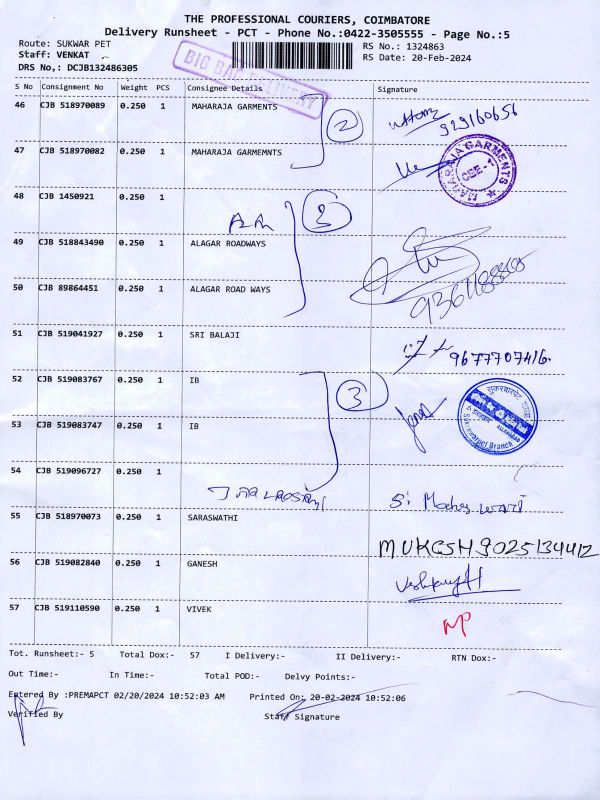 THE PROFESSIONAL COURIERS, COIMBATORE
Delivery Runsheet - PCT - Phone No.:0422-3505555 - Page No.:5
Route: SUKWAR PET
RS No.: 1324863
Staff: VENKAT
RS Date: 20-Feb-2024
DRS No.: DCJB132486305
BIG BAG DELIVERY
S No Consignment No Weight PCS Consignee Details Signature
46 CJB 518970089 0.250 1 MAHARAJA GARMENTS
2
929160656
47 CJB 518970082 0.250 1 MAHARAJA GARMEMNTS
MAHARAJA GARMENTS CBE-1
48 CJB 1450921 0.250 1
3
49 CJB 518843490 0.250 1 ALAGAR ROADWAYS
50 CJB 89864451 0.250 1 ALAGAR ROAD WAYS
51 CJB 519041927 0.250 1 SRI BALAJI
9677707416.
52 CJB 519083767 0.250 1 IB
3
53 CJB 519083747 0.250 1 IB
ALLAHABAD
Sukrawarpet Branch
54 CJB 519096727 0.250 1
55 CJB 518970073 0.250 1 SARASWATHI
MUKESH 9025134412
56 CJB 519082840 0.250 1 GANESH
57 CJB 519110590 0.250 1 VIVEK
Tot. Runsheet:- 5 Total Dox:- 57 I Delivery:- II Delivery:- RTN Dox:-
Out Time:- In Time:- Total POD:- Delvy Points:-
Entered By :PREMAPCT 02/20/2024 10:52:03 AM Printed On: 20-02-2024 10:52:06
Verified By Staff Signature